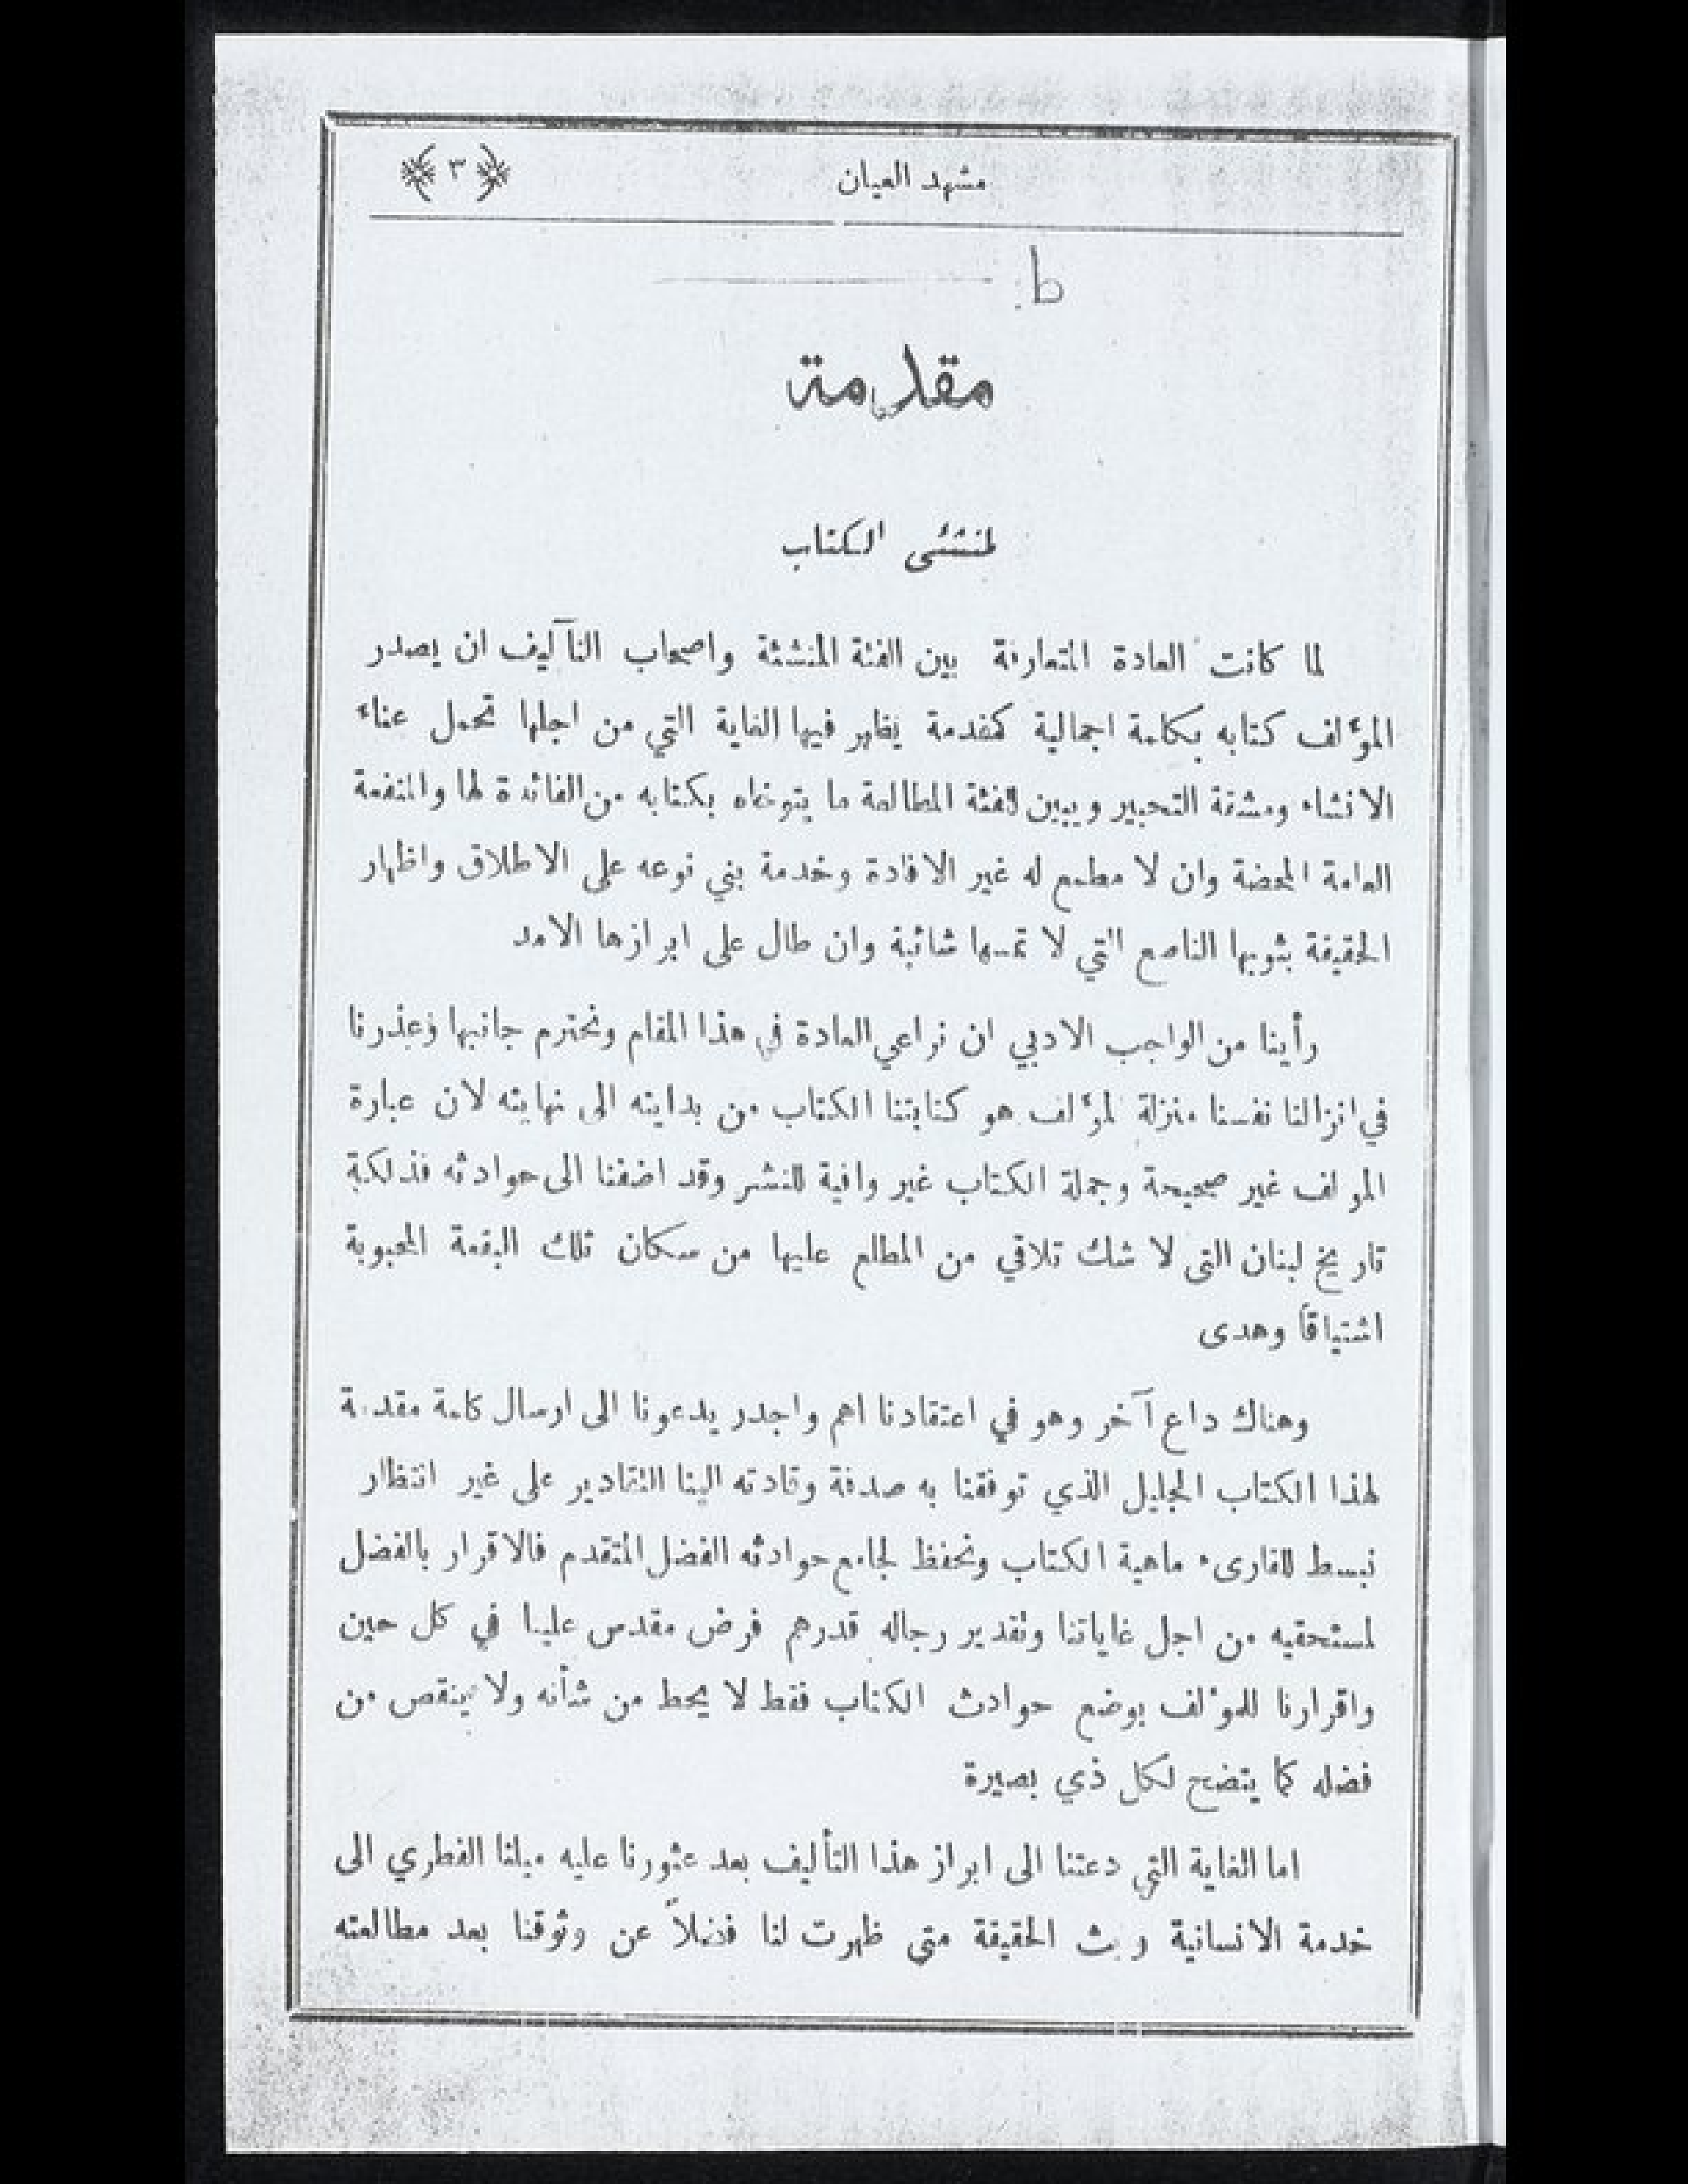 مشهد العيان
﴿ ٣ ﴾
مقدمة
لمنشئ الكتاب
لما كانت العادة المتعارفة بين الفئة المنشئة واصحاب التآليف ان يصدر
المؤلف كتابه بكلمة اجمالية كمقدمة يظهر فيها الغاية التي من اجلها تحمل عناء
الانشاء ومشقة التحبير ويبين للفئة المطالعة ما يتوخاه بكتابه من الفائدة لها والمنفعة
العامة المحضة وان لا مطمع له غير الافادة وخدمة بني نوعه على الاطلاق واظهار
الحقيقة بثوبها الناصع التي لا تمسها شائبة وان طال على ابرازها الامد
رأينا من الواجب الادبي ان نراعي العادة في هذا المقام ونحترم جانبها وعذرنا
في انزالنا نفسنا منزلة المؤلف هو كتابتنا الكتاب من بدايته الى نهايته لان عبارة
المولف غير صحيحة وجملة الكتاب غير وافية للنشر وقد اضفنا الى حوادثه فذلكة
تاريخ لبنان التي لا شك تلاقي من المطلع عليها من سكان تلك البقعة المحبوبة
اشتياقاً وهدى
وهناك داع آخر وهو في اعتقادنا اهم واجدر يدعونا الى ارسال كلمة مقدمة
لهذا الكتاب الجليل الذي توفقنا به صدفة وقادته الينا التقادير على غير انتظار
نبسط للقارىء ماهية الكتاب ونحفظ لجامع حوادثه الفضل المتقدم فالاقرار بالفضل
لمستحقيه من اجل غاياتنا وتقدير رجاله قدرهم فرض مقدس علينا في كل حين
واقرارنا للمؤلف بوضع حوادث الكتاب فقط لا يحط من شأنه ولا ينقص من
فضله كما يتضح لكل ذي بصيرة
اما الغاية التي دعتنا الى ابراز هذا التأليف بعد عثورنا عليه ميلنا الفطري الى
خدمة الانسانية وبث الحقيقة متى ظهرت لنا فضلاً عن وثوقنا بعد مطالعته